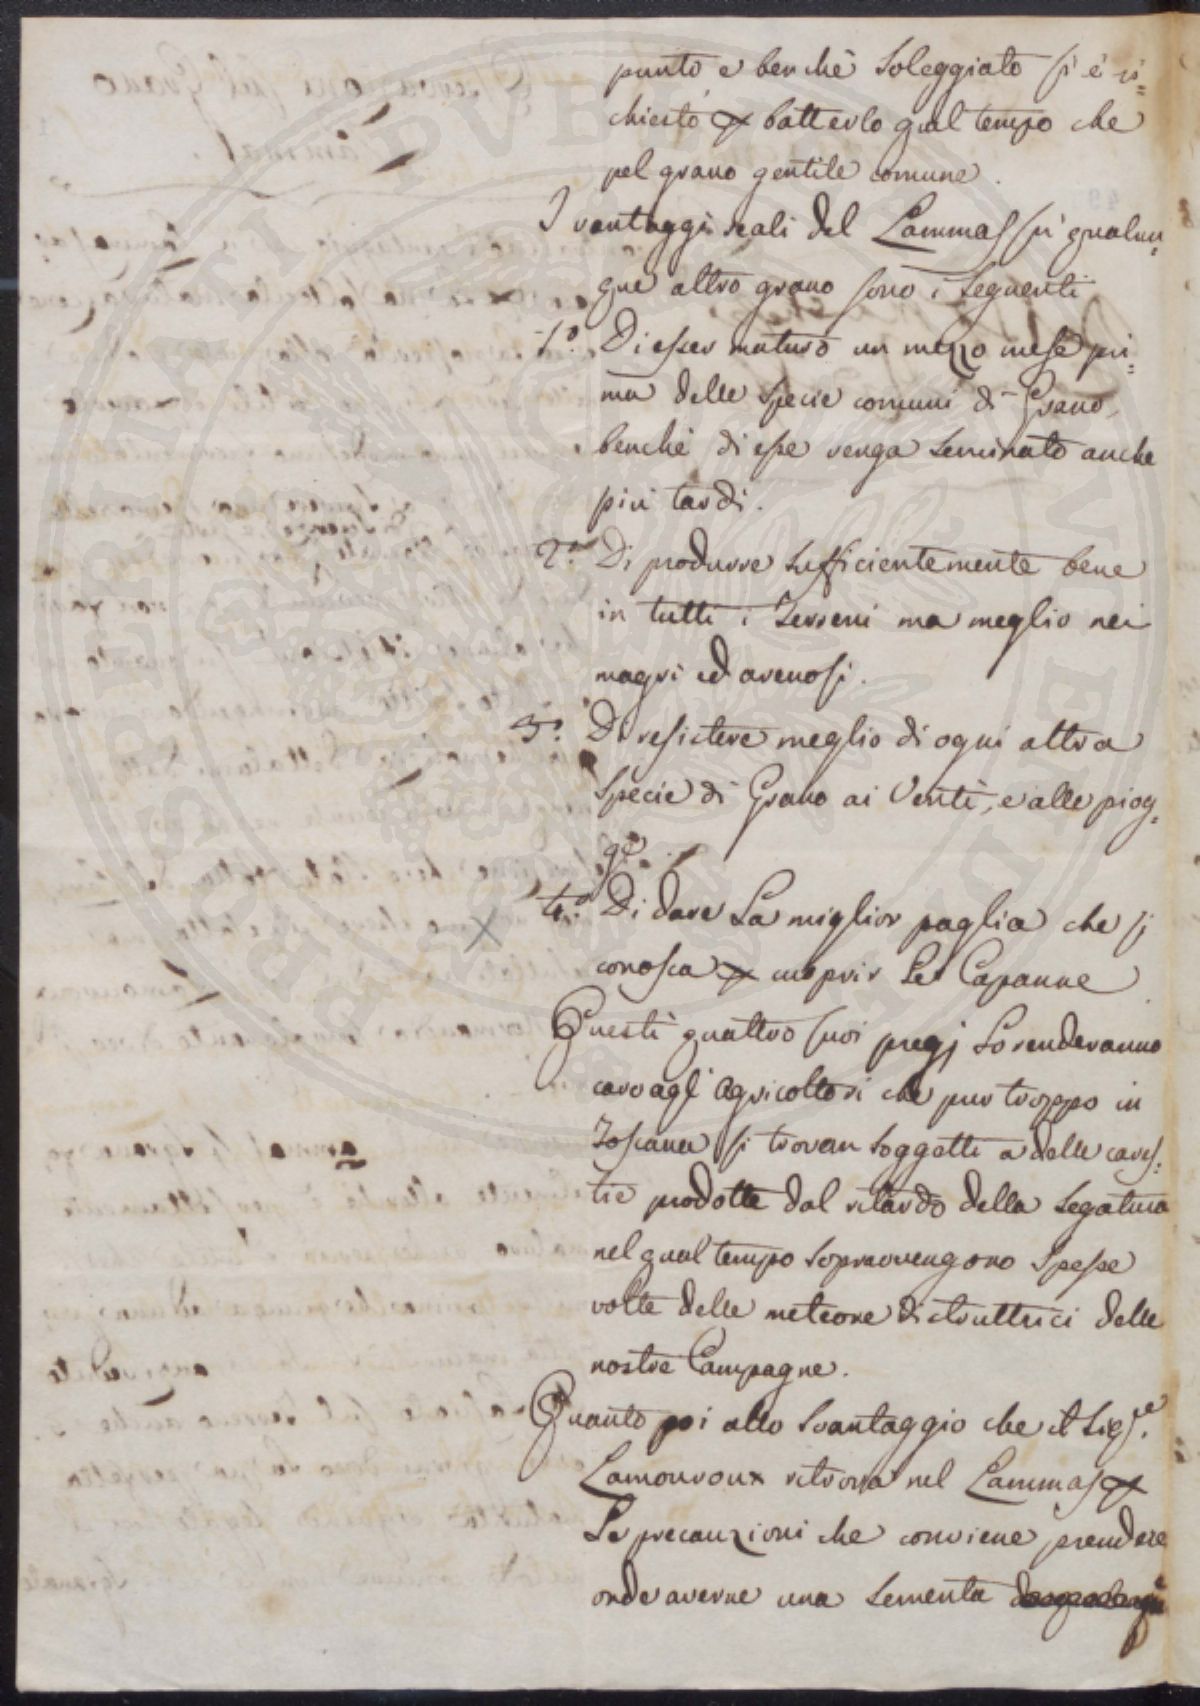 punto, e benchè Soleggiato si è ri=
chiesto p batterlo qual tempo che
pel grano gentile comune.
I vantaggi reali del Lammas su qualun=
que altro grano sono i Seguenti
1.º Di esser maturo un mezzo mese pri=
ma delle Specie comuni di Grano,
benchè di esse venga Seminato anche
più tardi.
2.º Di produrre Sufficientemente bene
in tutti i Terreni ma meglio nei
magri ed arenosi.
3.º Di resistere meglio di ogni altra
Specie di Grano ai Venti, e alle piog=
ge.
4.º Di dare La miglior paglia che si
conosca p cuoprir Le Capanne.
Questi quattro suoi pregj Lo renderanno
caro agl' Agricoltori che pur troppo in
Toscana si trovan Soggetti a delle cares=
tie prodotte dal ritardo della Segatura
nel qual tempo Sopravvengono Spesse
volte delle meteore distruttrici delle
nostre Campagne.
Quanto poi allo Svantaggio che il Sig.re
Lamouroux ritrova nel Lammas p
Le precauzioni che conviene prendere
onde averne una Sementa
PROSPERITATI PVBLICAE AVGENDAE